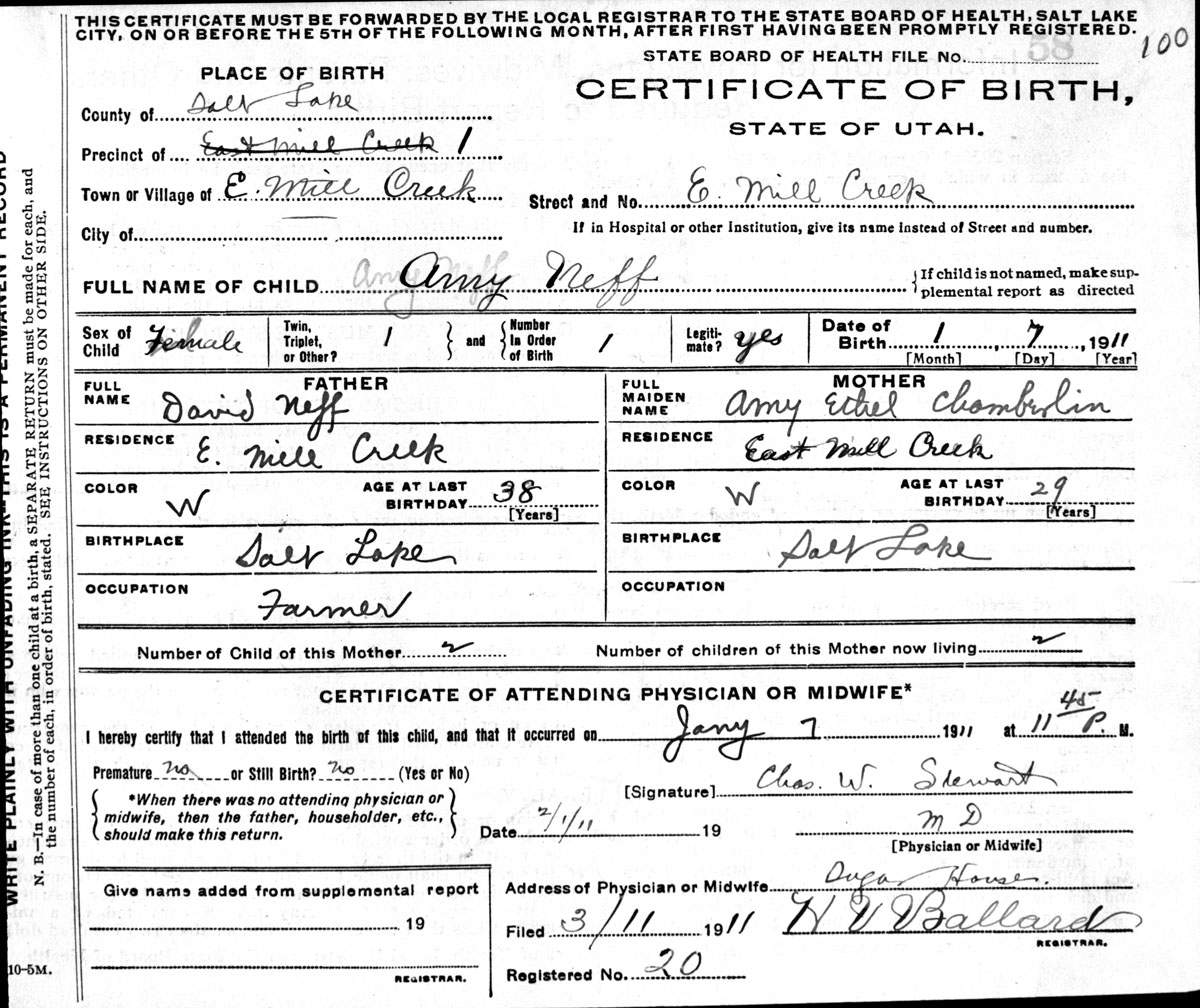 THIS CERTIFICATE MUST BE FORWARDED BY THE LOCAL REGISTRAR TO THE STATE BOARD OF HEALTH, SALT LAKE
CITY, ON OR BEFORE THE 5TH OF THE FOLLOWING MONTH, AFTER FIRST HAVING BEEN PROMPTLY REGISTERED.
100
STATE BOARD OF HEALTH FILE No. 58
PLACE OF BIRTH
CERTIFICATE OF BIRTH,
STATE OF UTAH.
County of Salt Lake
Precinct of East Mill Creek 1
Town or Village of E. Mill Creek
Street and No. E. Mill Creek
City of
If in Hospital or other Institution, give its name instead of Street and number.
FULL NAME OF CHILD Amy Neff Amy Neff
{If child is not named, make sup-
plemental report as directed
Sex of Child Female
Twin, Triplet, or Other? 1 } and { Number In Order of Birth 1
Legiti-mate? yes
Date of Birth 1, 7, 1911
[Month] [Day] [Year]
FATHER
FULL NAME David Neff
RESIDENCE E. Mill Creek
COLOR W AGE AT LAST BIRTHDAY 38 [Years]
BIRTHPLACE Salt Lake
OCCUPATION Farmer
MOTHER
FULL MAIDEN NAME Amy Ethel Chamberlin
RESIDENCE East Mill Creek
COLOR W AGE AT LAST BIRTHDAY 29 [Years]
BIRTHPLACE Salt Lake
OCCUPATION
Number of Child of this Mother 2 Number of children of this Mother now living 2
CERTIFICATE OF ATTENDING PHYSICIAN OR MIDWIFE*
I hereby certify that I attended the birth of this child, and that it occurred on Jany 7 1911 at 11 45 P. M.
Premature no or Still Birth? no (Yes or No)
[Signature] Chas. W. Stewart
{*When there was no attending physician or
midwife, then the father, householder, etc.,
should make this return.}
Date 2/1/11 19
M D
[Physician or Midwife]
Give name added from supplemental report
19
REGISTRAR.
Address of Physician or Midwife Sugar House.
Filed 3/11 1911 H V Ballard
REGISTRAR.
Registered No. 20
10-5M.
WRITE PLAINLY WITH UNFADING INK—THIS IS A PERMANENT RECORD
N. B.—In case of more than one child at a birth, a SEPARATE RETURN must be made for each, and
the number of each, in order of birth, stated. SEE INSTRUCTIONS ON OTHER SIDE.